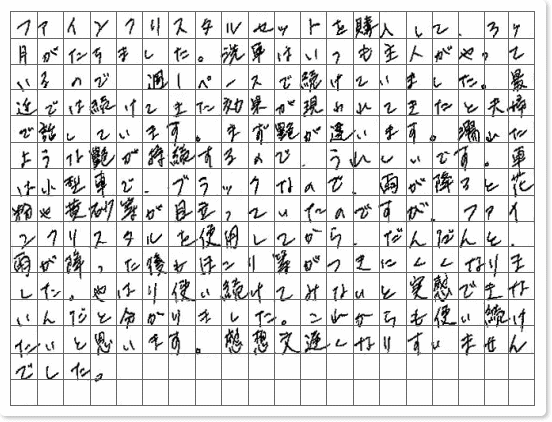 ファインクリスタルセットを購入して、3ヶ
月がたちました。洗車はいつも主人がやって
いるので、週一ペースで続けていました。最
近では続けてきた効果が現われてきたと夫婦
で話しています。まず艶が違います。濡れた
ような艶が持続するので、うれしいです。車
は小型車で、ブラックなので、雨が降ると花
粉や黄砂等が目立っていたのですが、ファイ
ンクリスタルを使用してから、だんだんと、
雨が降った後もほこり等がつきにくくなりま
した。やはり使い続けてみないと実感できな
いんだと分かりました。これからも使い続け
たいと思います。感想文遅くなりすいません
でした。